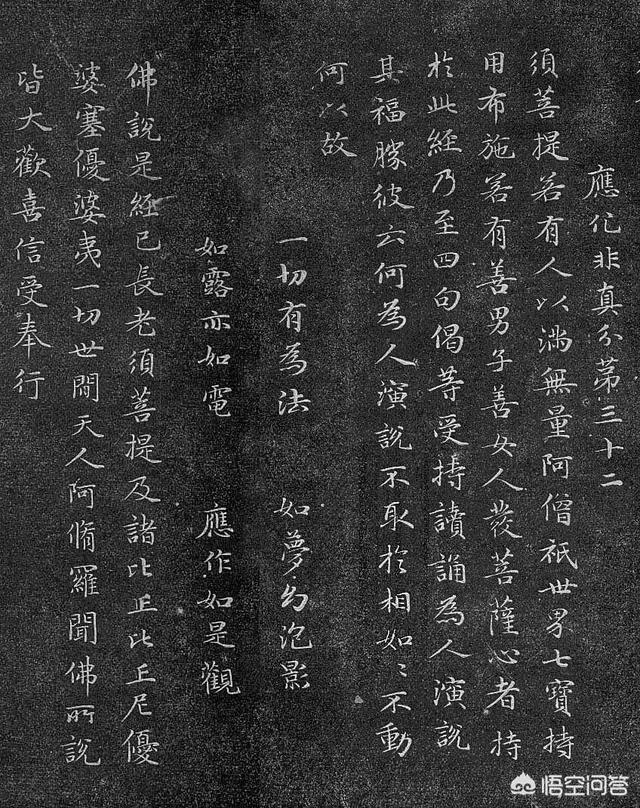 應化非真分第三十二
須菩提若有人以滿無量阿僧祇世界七寶持
用布施若有善男子善女人發菩薩心者持
於此經乃至四句偈等受持讀誦為人演說
其福勝彼云何為人演說不取於相如〻不動
何以故
一切有為法 如夢幻泡影
如露亦如電 應作如是觀
佛說是經已長老須菩提及諸比丘比丘尼優
婆塞優婆夷一切世間天人阿脩羅聞佛所說
皆大歡喜信受奉行
悟空问答